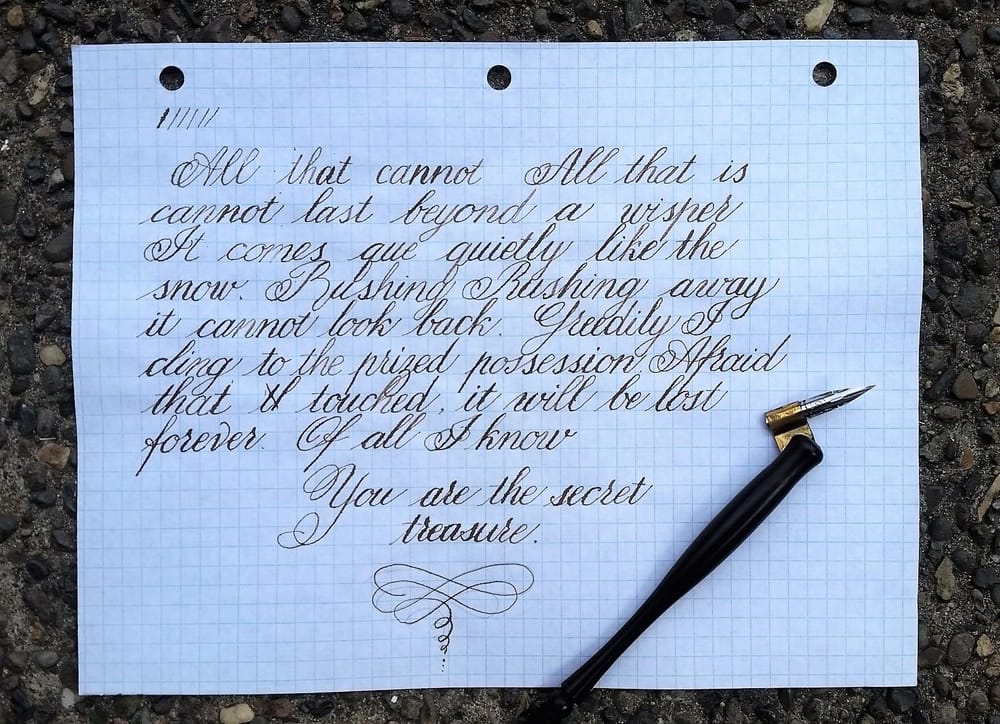 All that cannot All that is
cannot last beyond a wisper
It comes que quietly like the
snow. Rushing Rushing away
it cannot look back. Greedily I
cling to the prized possession Afraid
that if touched, it will be lost
forever. Of all I know
You are the secret
treasure.